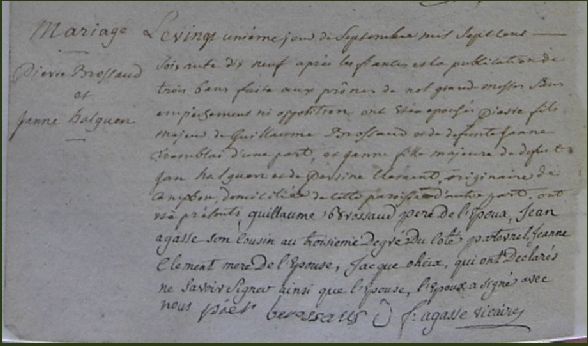 Mariage
Pierre Brossaud
et
Janne halguen
Le vingt unième jour de Septembre mil Sept Cens
Soixante dix neuf après les fiances et la publication de
trois bans faite aux prônes de not grand messe Sans
empechement ni opposition ont été épousés pierre fils
majeur de Guillaume Brossaud et de defunte Janne
d'une part, et janne fille majeure de defunt
jan halguen et de Perrine Clement, originaire de
Campbon, domiciliée de cette paroisse d'autre part, ont
été présents, guillaume Brossaud pere de l'époux, Jean
agasse son Cousin au troisieme degré du coté paternel, Jeanne
Clement mere de l'épouse, Jacque oheix, qui ont declarés
ne Savoir Signer ainsi que l'épouse, l'époux a signé avec
nous p brossaud f: agasse vicaire